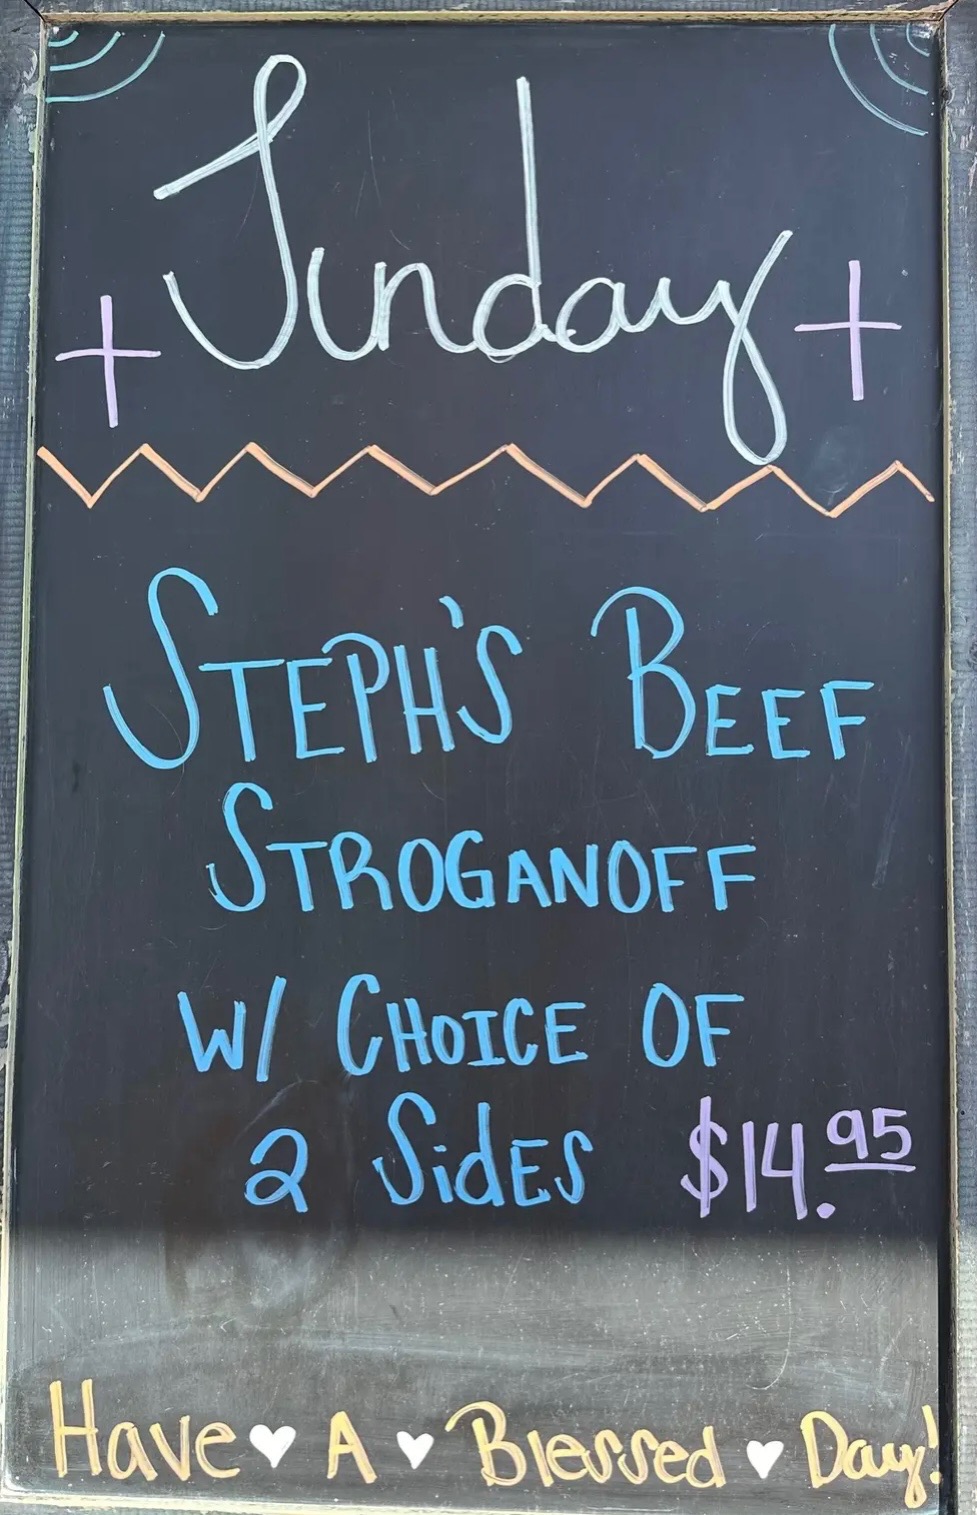 Sunday
STEPH'S BEEF
STROGANOFF
W/ CHOICE OF
2 SidES $14.95
Have A Blessed Day!